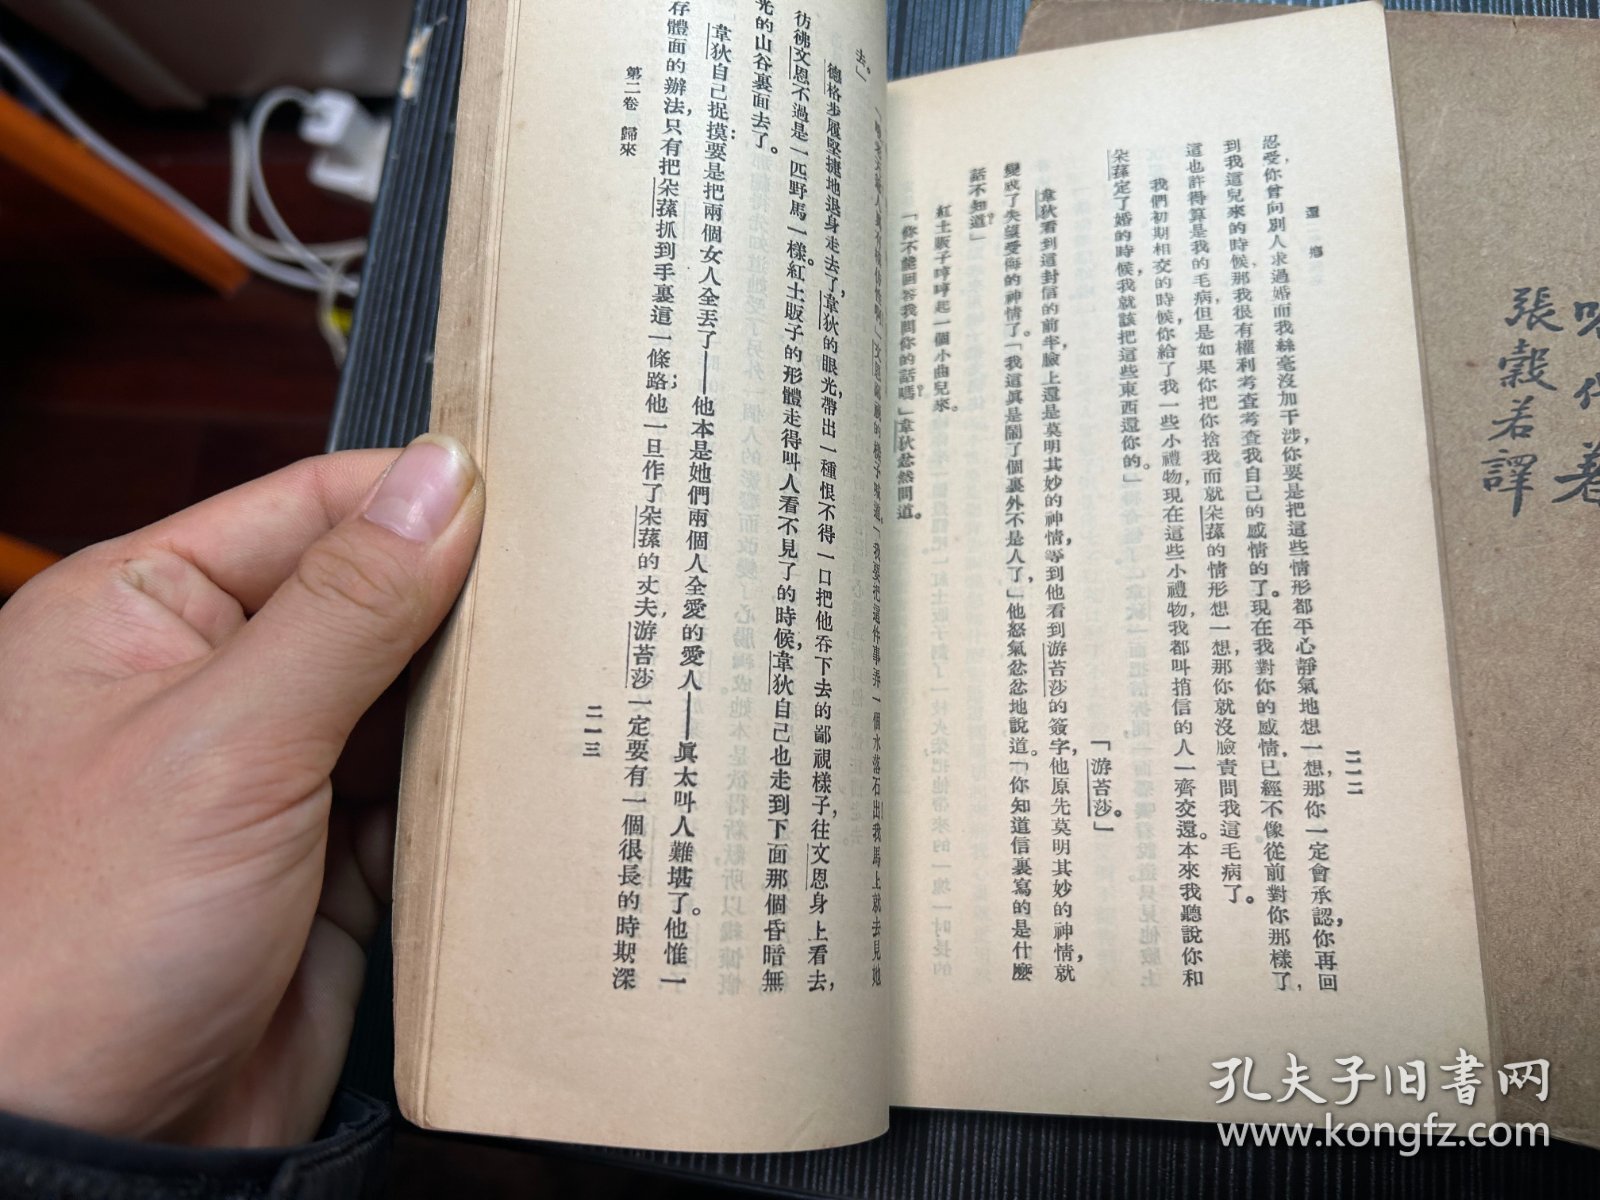 還鄉
二一二
忍受，你曾向別人求過婚而我絲毫沒加干涉，你要是把這些情形都平心靜氣地想一想，那你一定會承認，你再回
到我這兒來的時候那我很有權利考查考查我自己的感情的了。現在我對你的感情，已經不像從前對你那樣了，
這也許得算是我的毛病但是如果你把你捨我而就朵蓀的情形想一想那你就沒臉責問我這毛病了。
我們初期相交的時候你給了我一些小禮物，現在這些小禮物，我都叫捎信的人一齊交還。本來我聽說你和
朵蓀定了婚的時候，我就該把這些東西還你的。
「游苔莎。」
韋狄看到這封信的前半，臉上還是莫明其妙的神情，等到他看到游苔莎的簽字，他原先莫明其妙的神情，就
變成了失望愛悔的神情了。「我這眞是鬧了個裏外不是人了，」他怒氣忿忿地說道。「你知道信裏寫的是什麼
話不知道？」
紅土販子哼哼起一個小曲兒來。
「你不能回答我問你的話嗎？」韋狄忿然問道。
我要把這件事弄一個水落石出我馬上就去見她
去。」
德格步履堅捷地退身走去了，韋狄的眼光帶出一種恨不得一口把他吞下去的鄙視樣子，往文恩身上看去，
彷彿文恩不過是一匹野馬一樣。紅土販子的形體走得叫人看不見了的時候，韋狄自己也走到下面那個昏暗無
光的山谷裏面去了。
韋狄自己捉摸：要是把兩個女人全丟了——他本是她們兩個人全愛的愛人——眞太叫人難堪了。他惟一
存體面的辦法，只有把朵蓀抓到手裏這一條路；他一旦作了朵蓀的丈夫，游苔莎一定要有一個很長的時期，深
第二卷 歸來
二一三
代著
張穀若譯
孔夫子旧书网
www.kongfz.com